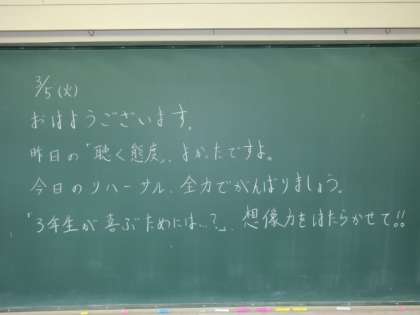 3/5(火)
おはようございます。
昨日の「聴く態度」、よかったですよ。
今日のリハーサル、全力でがんばりましょう。
「3年生が喜ぶためには…?」、想像力をはたらかせて!!